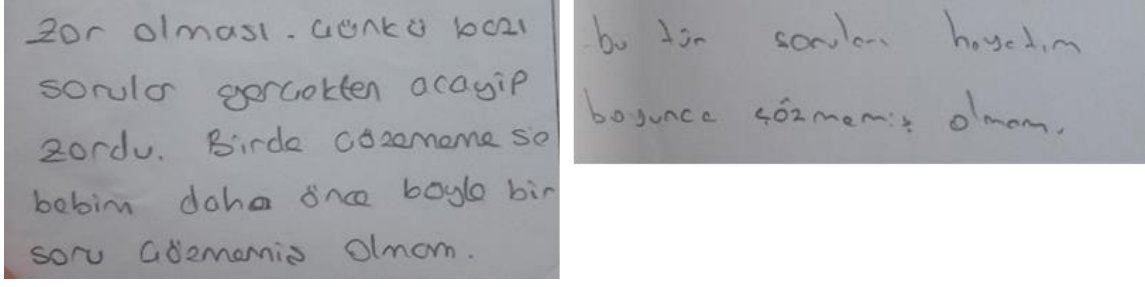 zor olması. Çünkü bazı
sorular gerçekten acayip
zordu. Birde çözememe se
bebim daha önce böyle bir
soru çözmemiş olmam.
bu tür soruları hayatım
boyunca çözmemiş olmam.